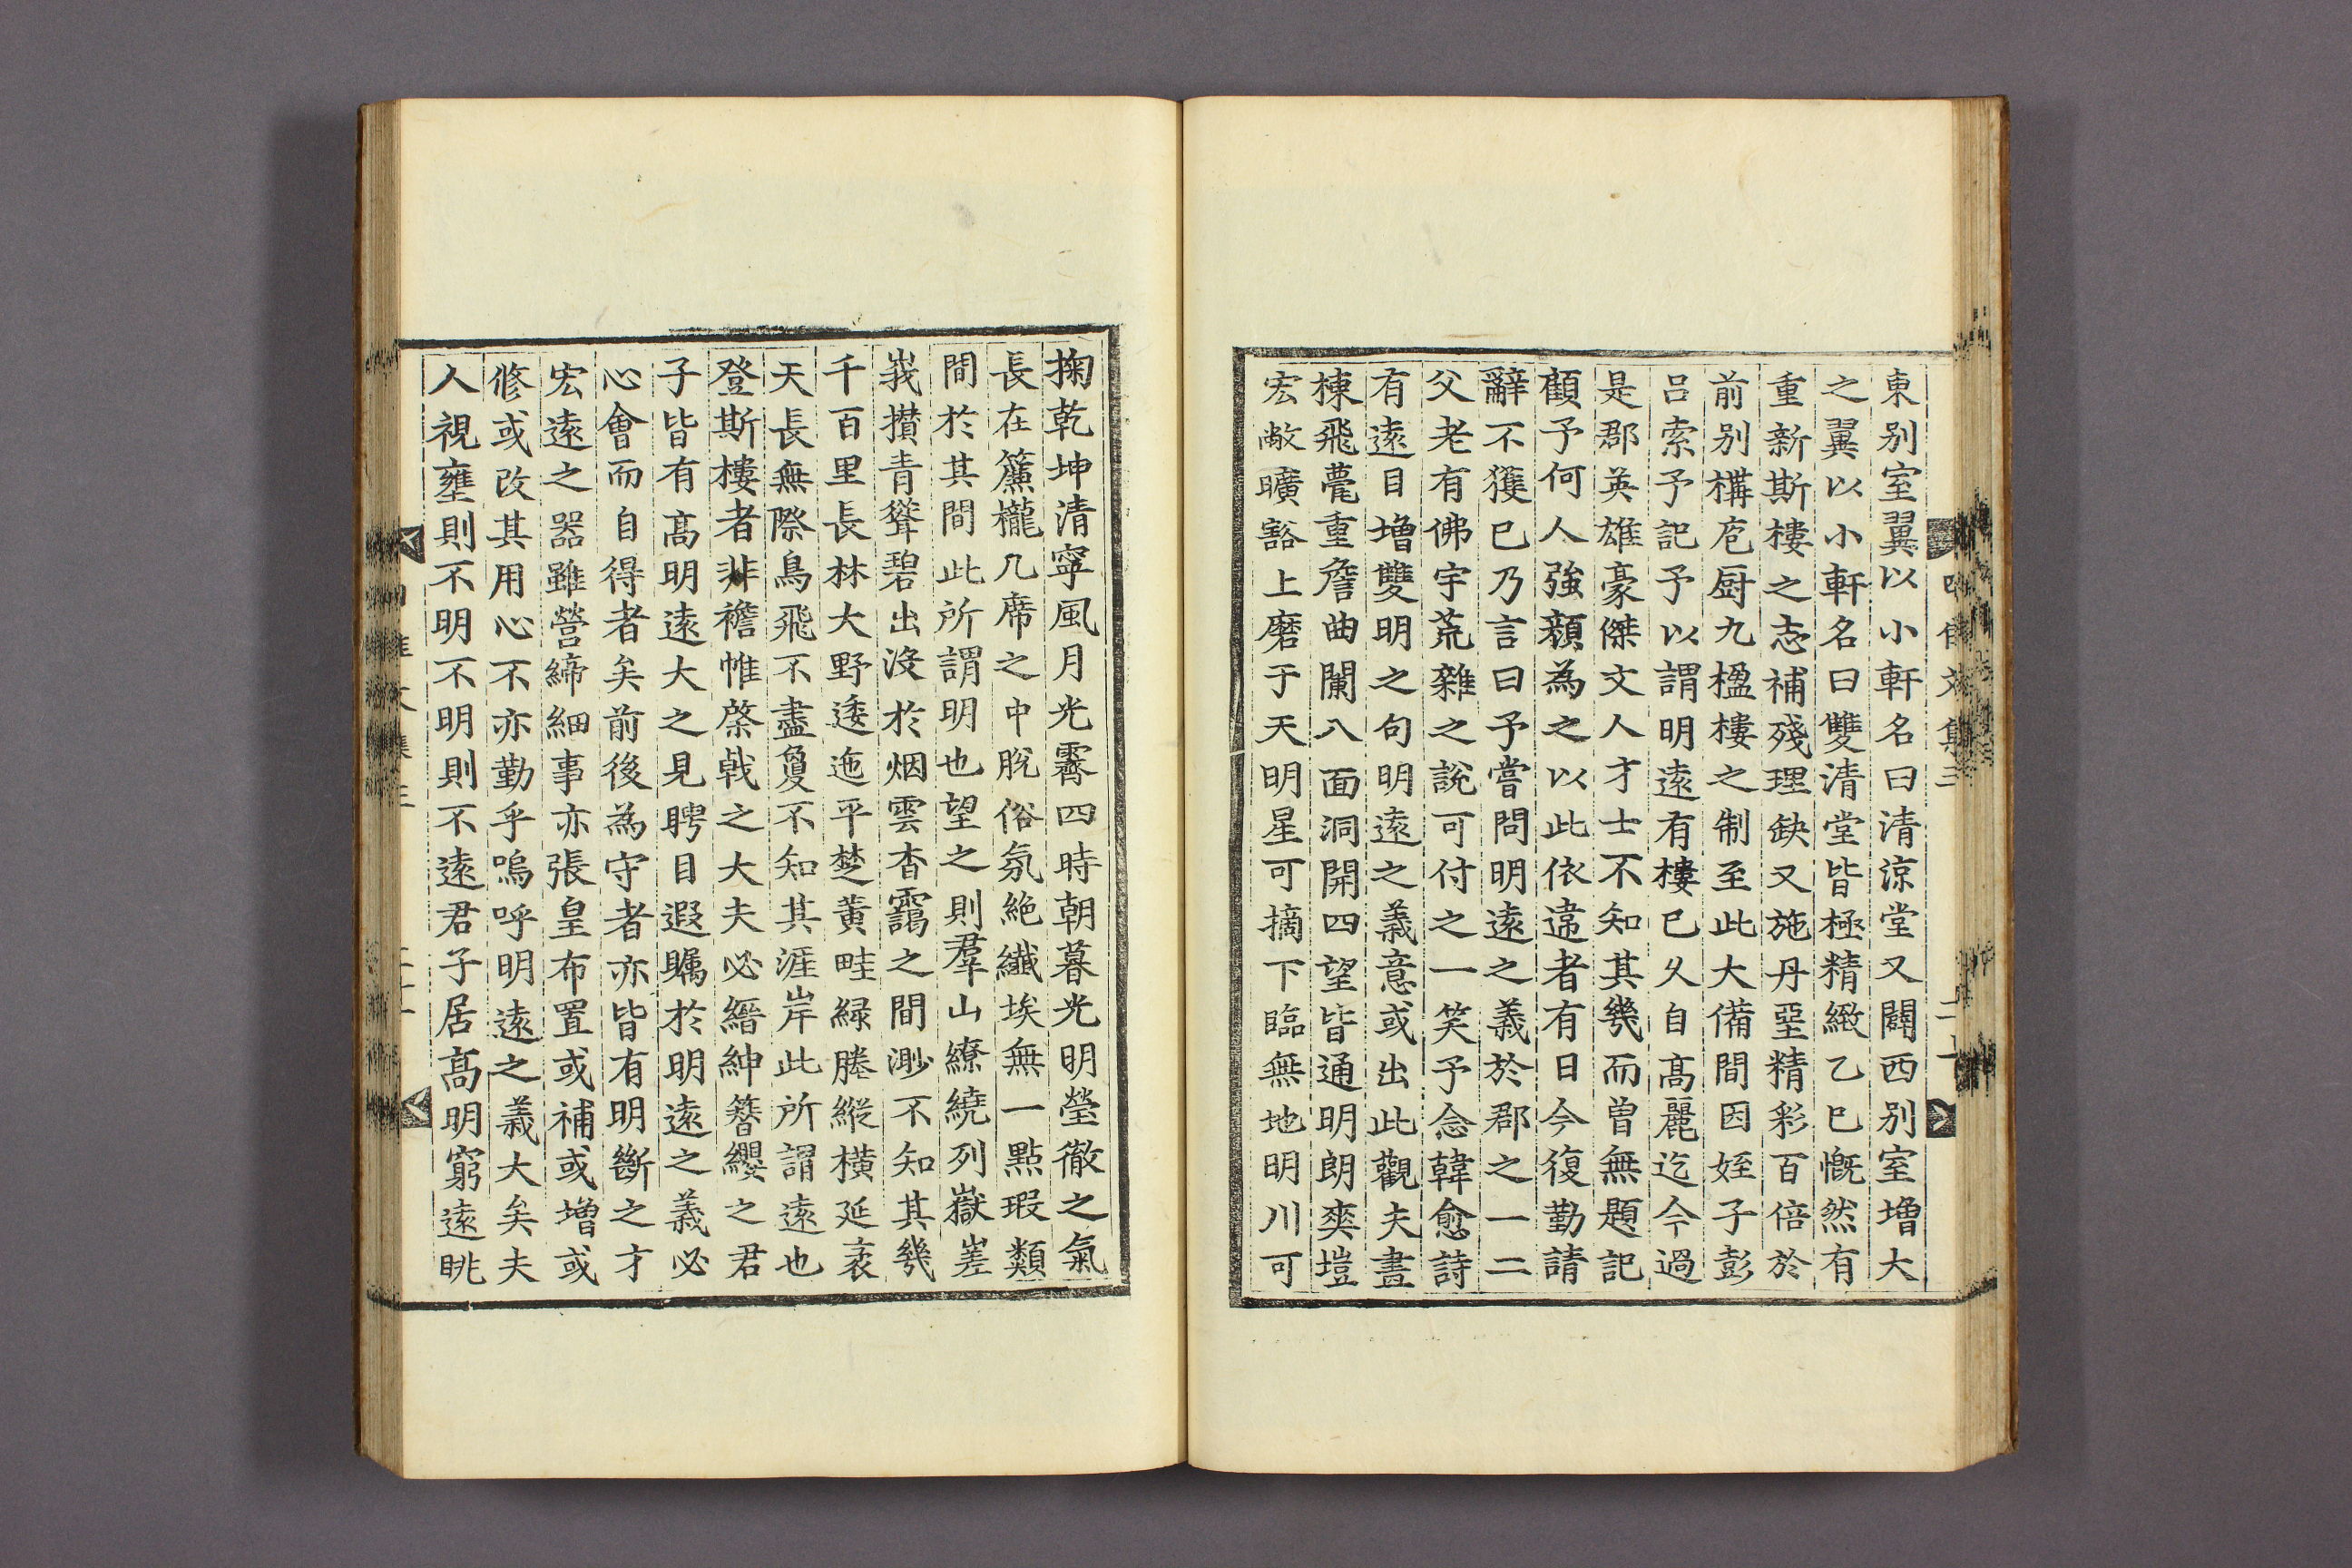 東別室翼以小軒名曰清涼堂又闢西別室增大
之翼以小軒名曰雙清堂皆極精緻乙巳慨然有
重新斯樓之志補殘理缺又施丹堊精彩百倍於
前別構庖厨九楹樓之制至此大備間因姪子彭
呂索予記予以謂明遠有樓已久自高麗迄今過
是郡英雄豪傑文人才士不知其幾而曾無題記
顧予何人強顏為之以此依違者有日今復勤請
辭不獲已乃言曰予嘗問明遠之義於郡之一二
父老有佛宇荒雜之說可付之一笑予念韓愈詩
有遠目增雙明之句明遠之義意或出此觀夫畫
棟飛甍重詹曲闌八面洞開四望皆通明朗爽塏
宏敞曠豁上磨于天明星可摘下臨無地明川可
掬乾坤清寧風月光霽四時朝暮光明瑩徹之氣
長在簾櫳几席之中脫俗氛絶纖埃無一點瑕纇
間於其間此所謂明也望之則羣山繚繞列嶽嵳
峩攅青聳碧出沒於烟雲杳靄之間渺不知其幾
千百里長林大野逶迤平楚黃畦緑塍縱橫延袤
天長無際鳥飛不盡敻不知其涯岸此所謂遠也
登斯樓者非襜帷棨戟之大夫必縉紳簪纓之君
子皆有高明遠大之見聘目遐矚於明遠之義必
心會而自得者矣前後為守者亦皆有明斷之才
宏遠之器雖營締細事亦張皇布置或補或增或
修或改其用心不亦勤乎嗚呼明遠之義大矣夫
人視壅則不明不明則不遠君子居高明窮遠眺